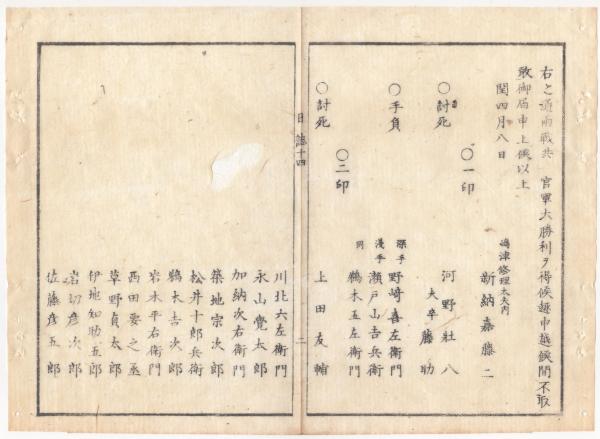 右之通両戦共　官軍大勝利ヲ得候趣申越候間不取
敢御届申上候以上
閏四月八日
島津修理大夫内
新納嘉藤二
〇一印
〇討死
河野壮八
大卒藤助
〇手負
深手　野崎喜左衛門
浅手　瀬戸山吉兵衛
同　鵜木五左衛門
〇二印
〇討死
上田友輔
日誌十四
二
川北六左衛門
永山覚太郎
加納次右衛門
築地宗次郎
松井十郎兵衛
鵜木吉次郎
岩木平右衛門
西田要之丞
草野貞太郎
伊地知助五郎
岩切彦次郎
佐藤彦五郎